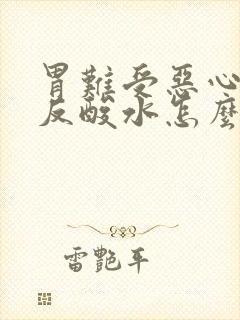 胃難受惡心
反酸水怎麼
雷艷平